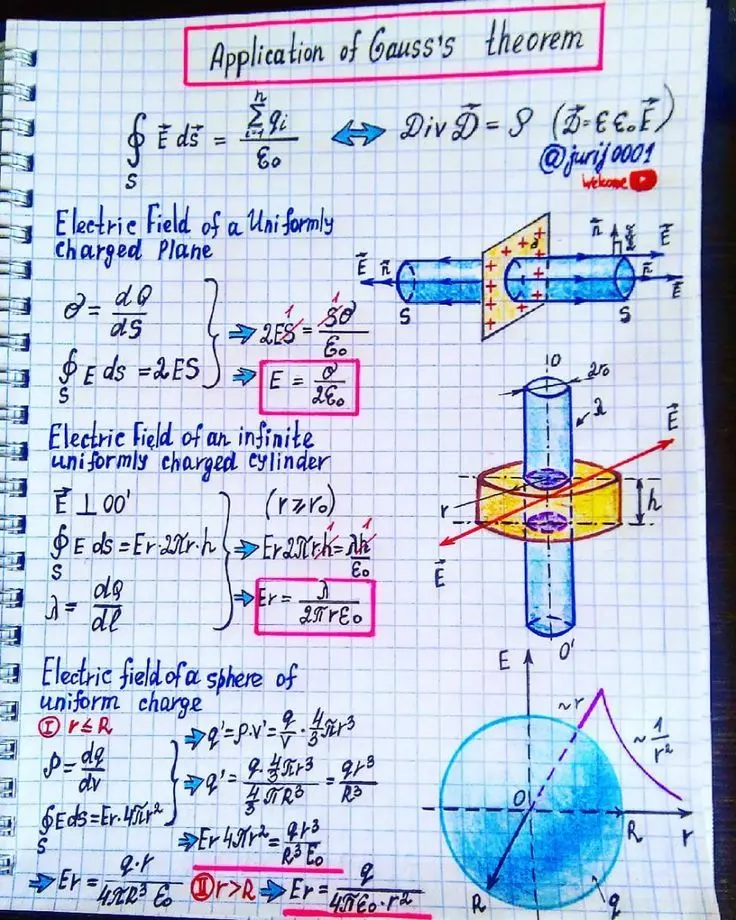 Application of Gauss's theorem
∮_S E⃗ ds⃗ = Σ_{i=1}^{n} q_i / ε₀ ⟺ Div D⃗ = ρ (D⃗ = εε₀E⃗)
@jurij0001
Welcome
Electric Field of a Uniformly
charged Plane
σ = dQ/dS
∮_S E ds = 2ES
⇒ 2ES = Sσ/ε₀
1 1
⇒ E = σ/2ε₀
E⃗ n⃗ S
+ + + + + + + + + + σ
n⃗ E⃗ n⃗ E⃗ S
Electric Field of an infinite
uniformly charged cylinder
E⃗ ⊥ OO'
∮_S E ds = Er·2πr·h
λ = dQ/dl
(r ⩾ r₀)
⇒ Er 2πrh = λh/ε₀
1 1
⇒ Er = λ/2πrε₀
O 2r₀
λ
E⃗
r h
E⃗
O'
Electric field of a sphere of
uniform charge
I r ≤ R
ρ = dq/dv
∮_S E ds = Er·4πr²
⇒ q' = ρ·v' = q/v · 4/3 πr³
⇒ q' = q·4/3 πr³ / 4/3 πR³ = qr³/R³
⇒ Er 4πr² = qr³/R³ε₀
⇒ Er = q·r/4πR³ε₀
II r > R ⇒ Er = q/4πε₀·r²
E
~r ~1/r²
O R r
R q